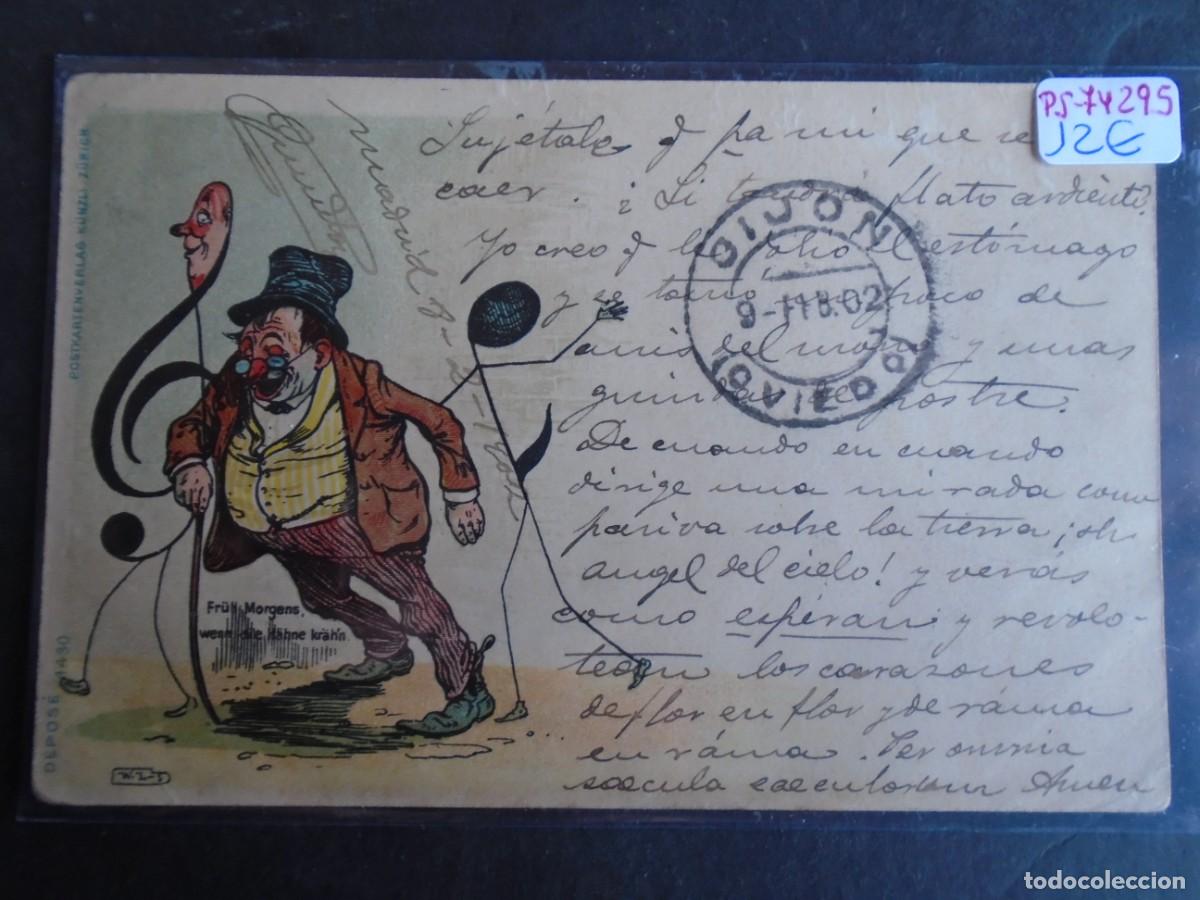 PS-74295
12€
Sujétalo q pa mi que se
caer. ¿Si tendrá flato ardiente?
Yo creo q le olió el estómago
y se tomó un poco de
anis del mono y unas
guindas de postre.
De cuando en cuando
dirige una mirada com
pasiva sobre la tierra ¡oh
angel del cielo! y verás
como espiran y revolo-
tean los corazones
de flor en flor y de ráma
en ráma. Per omnia
saecula saeculorum Amen
Madrid 8-2-1902
GIJON
9-FEB.02
(OVIEDO)
POSTKARTENVERLAG KÜNZLI ZÜRICH
DEPOSÉ 4430
Früh Morgens,
wenn die Hähne kräh'n
todocoleccion